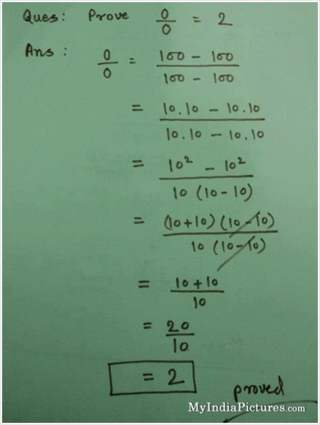 Ques: Prove 0/0 = 2
Ans: 0/0 = (100 - 100)/(100 - 100)
= (10.10 - 10.10)/(10.10 - 10.10)
= (10² - 10²)/(10 (10 - 10))
= ((10+10) (10-10))/(10 (10-10))
= (10 + 10)/10
= 20/10
= 2
proved
MyIndiaPictures.com